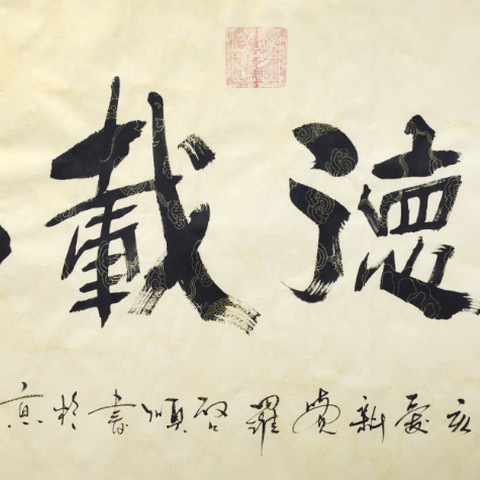 德載
亥愛新覺羅啓順書於京